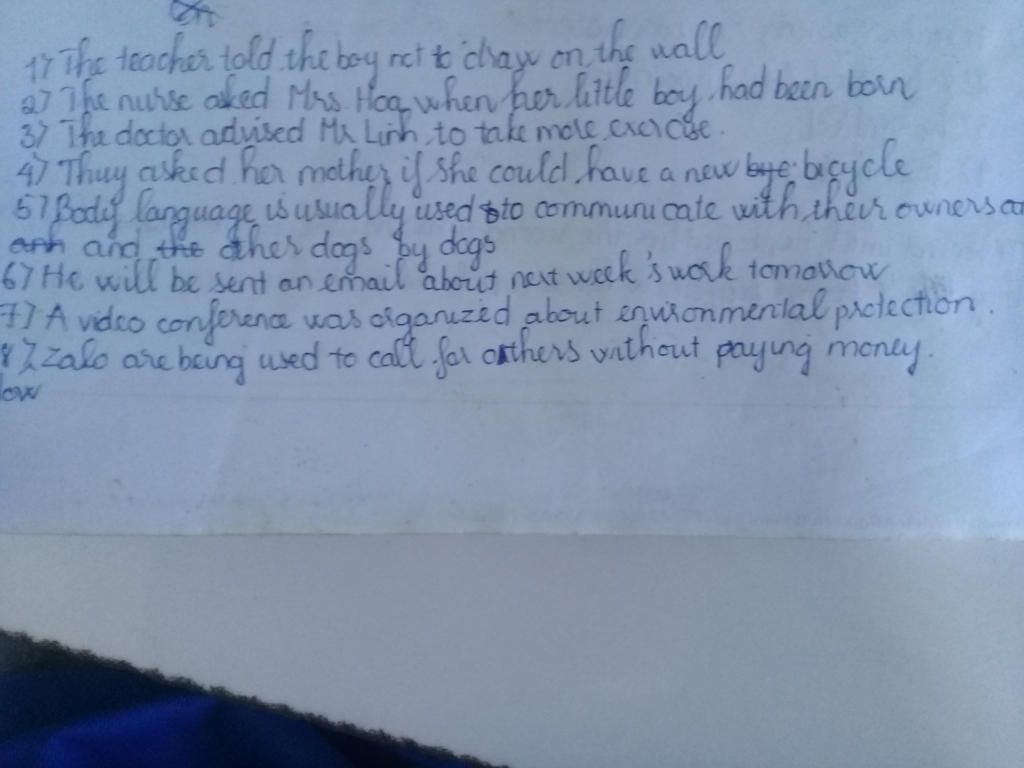 1) The teacher told the boy not to draw on the wall
2) The nurse asked Mrs. Hoa when her little boy had been born
3) The doctor advised Mr Linh to take more exercise.
4) Thuy asked her mother if she could have a new bye bicycle
5) Body language is usually used to communicate with their owners
and the other dogs by dogs
6) He will be sent an email about next week's work tomorrow
7) A video conference was organized about environmental protection.
8) Zalo are being used to call for others without paying money.
ow